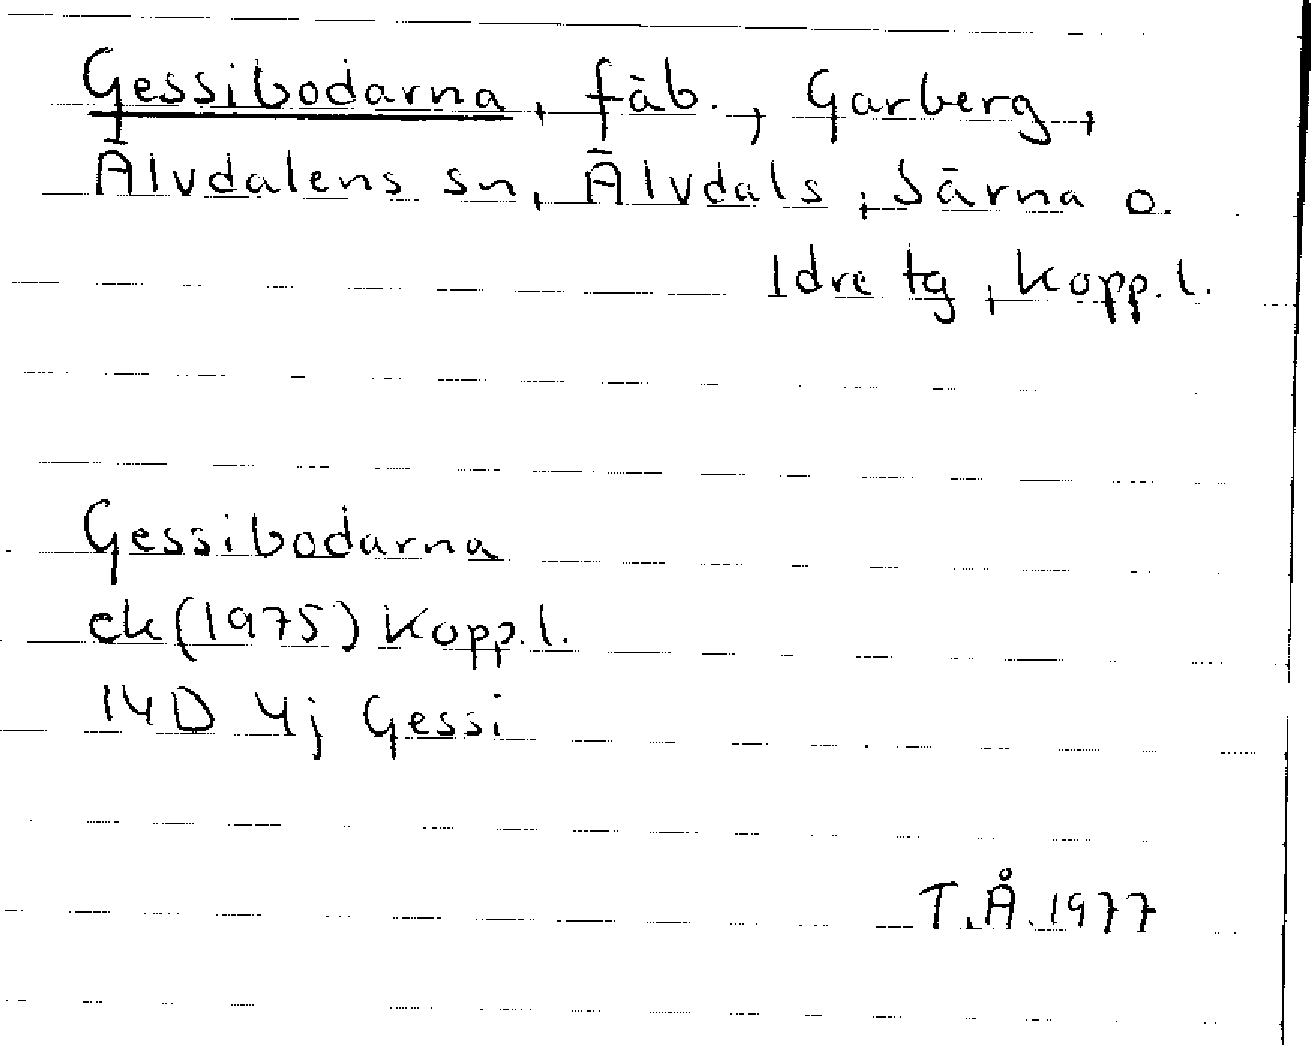 Gessibodarna, fäb., Garberg,
Älvdalens sn, Älvdals, Särna o.
Idre tg, Kopp.l.
Gessibodarna
ek (1975) Kopp.l.
14D 4j Gessi
T.Å. 1977